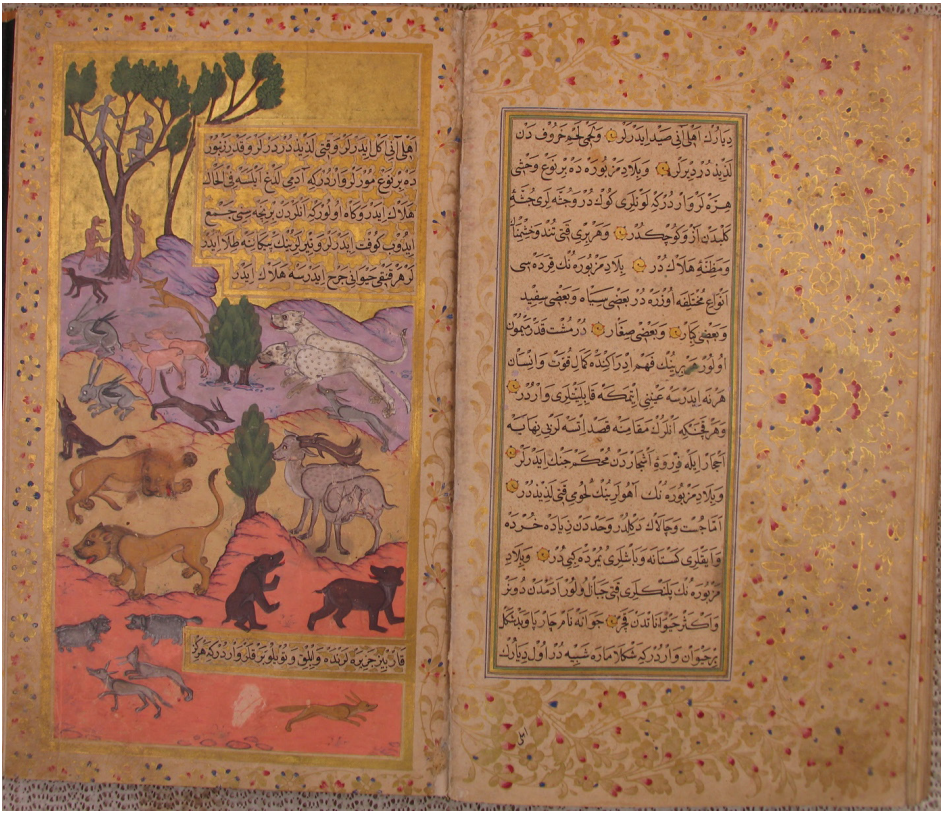 دیارك اهلی آنی صید ایدرلر ولحمی لحم خروف دن
لذیذدر دیرلر وبلاد مزبوره ده بر نوع وحشی
هره لر واردر كه لونلری كوك در وجثه لری جثۀ
كلبدن آز كوچكدر وهر بری قتی تند وخشمناك
ومظنۀ هلاك در بلاد مزبوره نك قرده سی
انواع مختلفه اوزره در بعضی سیاه وبعضی سفید
وبعضی كبار وبعضی صغار در مشت قدر میمون
اولور هر برینك فهم ادراكنده كمال قوت وانسان
هر نه ایدرسه عینی ایتمكه قابلیتلری واردر
وهر قچنكه انلرك مقامنه قصد اتسه لر بی نهایه
احجار ایله اشجاردن محكم جنك ایدرلر
وبلاد مزبوره نك آهولرینك لحومی قتی لذیذدر
اما چست وچالاك دكلدر وحددن زیاده خرده
وایقلری وباشلری كبی در وبلاد
مزبوره نك پلنكلری قتی جبان اولور آدمدن دونر
واكثر حیواناتدن قچر جوانه نام چارپا وبد شكل
بر حیوان واردر كه شكلا ماره شبیه در اول دیارك
اهلی
اهلی آنی اكل ایدرلر وقتی لذیذدر دیرلر وقدر زبور
ده بر نوع مورلر واردر كه آدمی لدغ ایلسه فی الحال
هلاك ایدر وكاه اولور كه آنلردن بر نیجه سی جمع
ایدوب كوفت ایدرلر وتیرلرینك پیكاننه طلا ایدر
لر هر قنقی حیوانی جرح ایدرسه هلاك ایدر
جزیره لرنده وابلق وتویلو بر قاز واردر كه هر